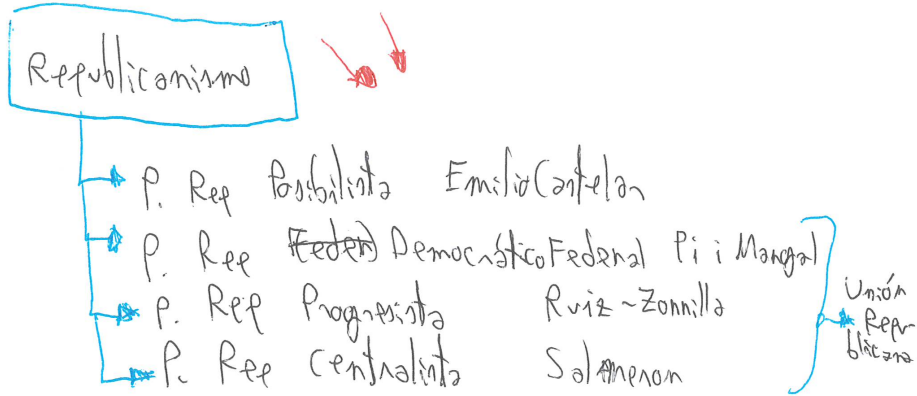 Republicanismo
P. Rep Posibilista Emilio Castelar
P. Rep Democrático Federal Pi i Margal
P. Rep Progresista Ruiz-Zorrilla
P. Rep Centralista Salmeron
Unión
Repu-
blicana